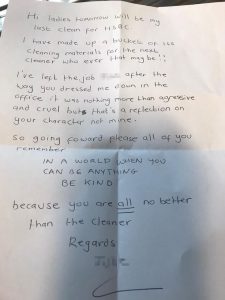 Hi ladies tomorrow will be my
last clean for HSBC.
I have made up a bucket of
cleaning materials for the next
cleaner who ever that may be!!
I've left the job after the
way you dressed me down in the
office it was nothing more than agressive
and cruel but that's a reflection on
your character not mine.
So going foward please all of you
remember
IN A WORLD WHEN YOU
CAN BE ANYTHING
BE KIND
because you are all no better
than the cleaner
Regards